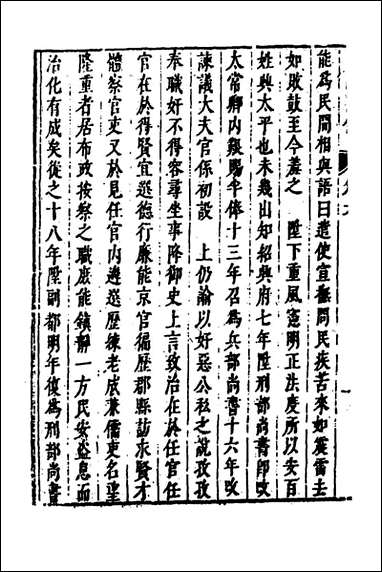 能爲民間相與語曰遣使宣撫問民疾苦來如震雷去
如敗鼓至今羞之　陛下重風憲明正法度所以安百
姓興太平也未幾出知紹興府七年陞刑部尚書卽改
太常卿内艱賜半俸十三年召爲兵部尚書十六年改
諫議大夫官係初設　上仍諭以好惡公私之說孜孜
奉職奸不得容尋坐事降御史上言致治在於任官任
官在於得賢宜選德行廉能京官徧歷郡縣訪求賢才
體察官吏又於見任官内遴選歷練老成兼儒吏名望
隆重者居布政按察之職庶能鎮靜一方民安盜息而
治化有成矣從之十八年陞副都明年復爲刑部尚書